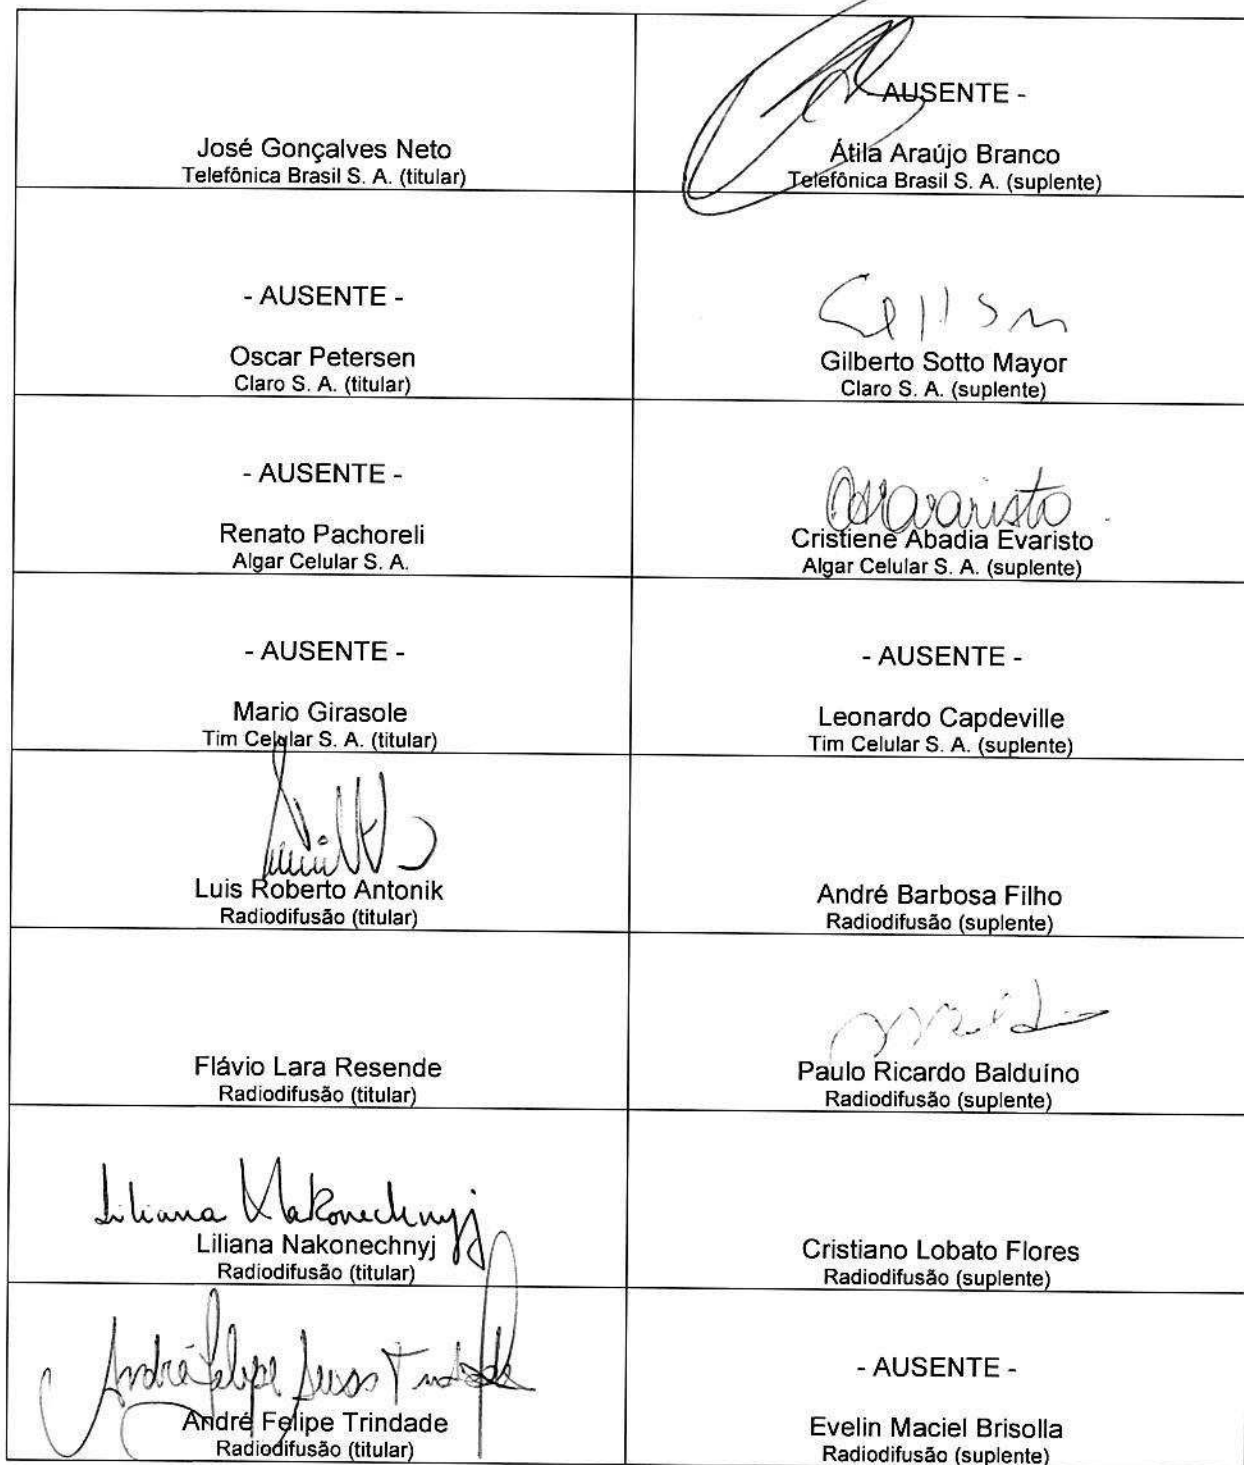 - AUSENTE -
José Gonçalves Neto
Telefônica Brasil S. A. (titular)
Átila Araújo Branco
Telefônica Brasil S. A. (suplente)
- AUSENTE -
Oscar Petersen
Claro S. A. (titular)
Gilberto Sotto Mayor
Claro S. A. (suplente)
- AUSENTE -
Renato Pachoreli
Algar Celular S. A.
Cristiene Abadia Evaristo
Algar Celular S. A. (suplente)
- AUSENTE -
Mario Girasole
Tim Celular S. A. (titular)
- AUSENTE -
Leonardo Capdeville
Tim Celular S. A. (suplente)
Luis Roberto Antonik
Radiodifusão (titular)
André Barbosa Filho
Radiodifusão (suplente)
Flávio Lara Resende
Radiodifusão (titular)
Paulo Ricardo Balduíno
Radiodifusão (suplente)
Liliana Nakonechnyj
Liliana Nakonechnyj
Radiodifusão (titular)
Cristiano Lobato Flores
Radiodifusão (suplente)
André Felipe Trindade
André Felipe Trindade
Radiodifusão (titular)
- AUSENTE -
Evelin Maciel Brisolla
Radiodifusão (suplente)